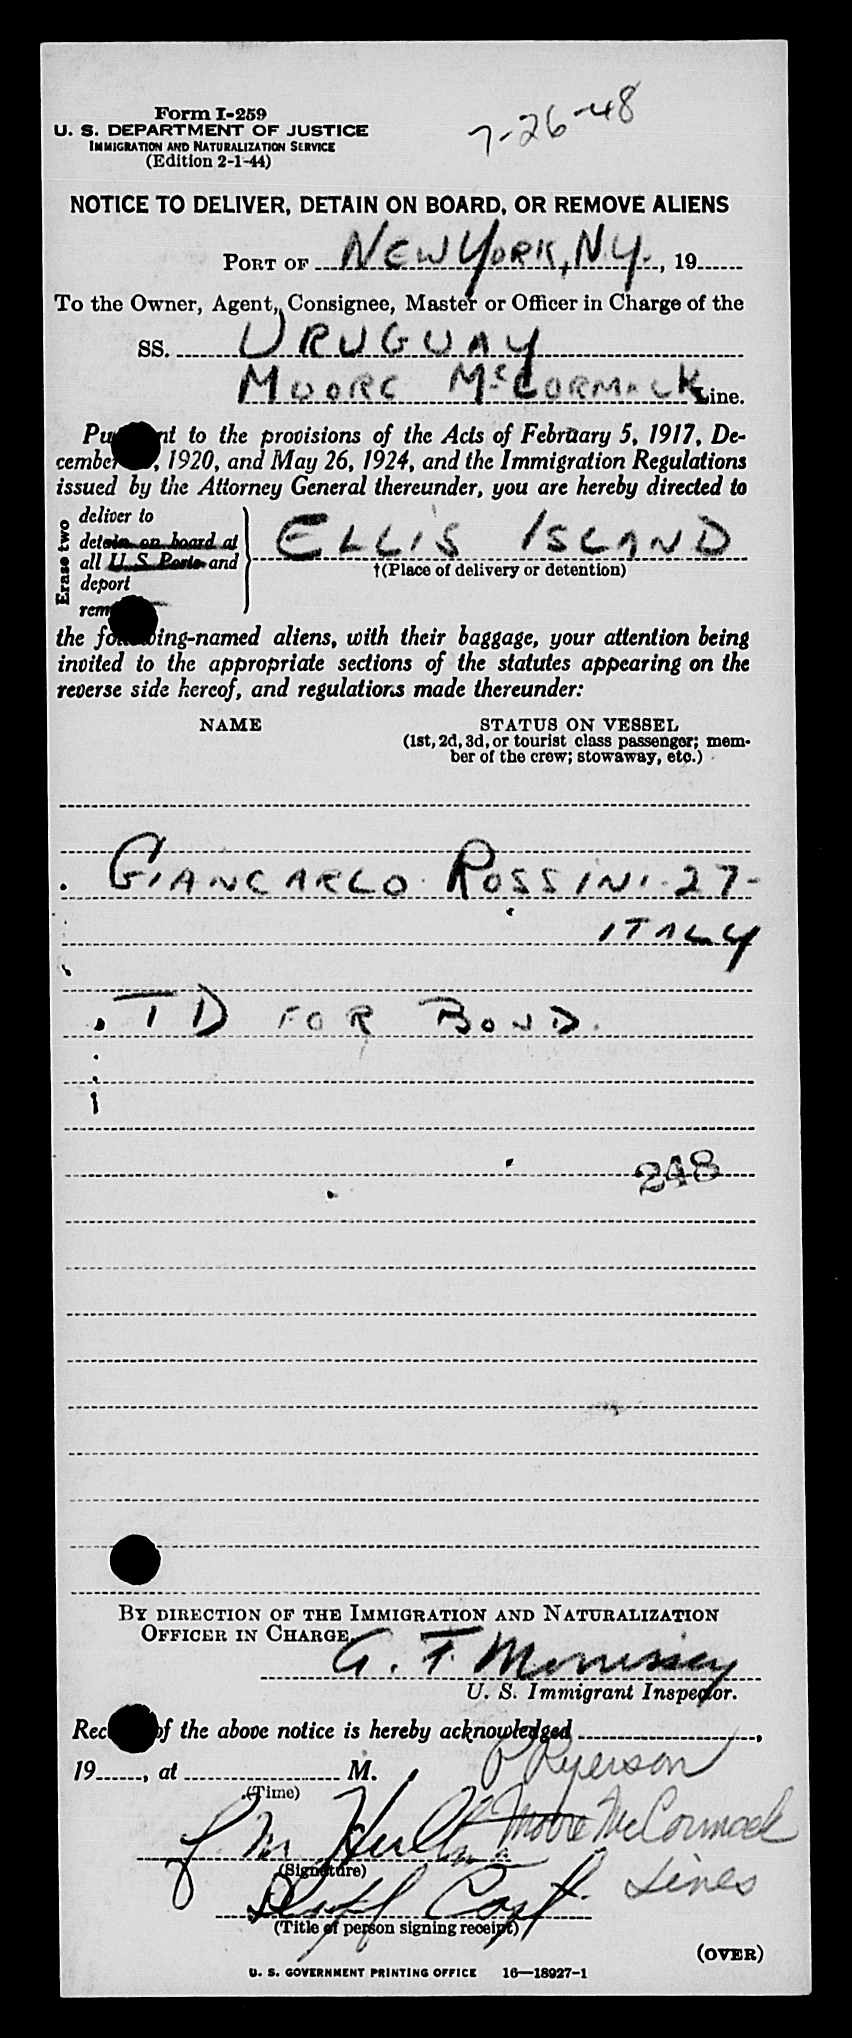 Form I-259
7-26-48
U. S. DEPARTMENT OF JUSTICE
IMMIGRATION AND NATURALIZATION SERVICE
(Edition 2-1-44)
NOTICE TO DELIVER, DETAIN ON BOARD, OR REMOVE ALIENS
PORT OF NEW YORK, N.Y., 19
To the Owner, Agent, Consignee, Master or Officer in Charge of the
SS. URUGUAY
MOORE McCORMACK Line.
to the provisions of the Acts of February 5, 1917, De-
cember , 1920, and May 26, 1924, and the Immigration Regulations
issued by the Attorney General thereunder, you are hereby directed to
Erase two
deliver to
detain on board at
all U. S. Ports and
deport
ELLIS ISLAND
†(Place of delivery or detention)
the following-named aliens, with their baggage, your attention being
invited to the appropriate sections of the statutes appearing on the
reverse side hereof, and regulations made thereunder:
NAME
STATUS ON VESSEL
(1st, 2d, 3d, or tourist class passenger; mem-
ber of the crew; stowaway, etc.)
GIANCARLO ROSSINI - 27-
ITALY
TD FOR BOND.
248
BY DIRECTION OF THE IMMIGRATION AND NATURALIZATION
OFFICER IN CHARGE.
G. F. Morrissey
U. S. Immigrant Inspector.
of the above notice is hereby acknowledged ,
19 , at M.
P Ryerson
(Time)
Moore McCormack
J. M.
(Signature)
Lines
(Title of person signing receipt)
(OVER)
U. S. GOVERNMENT PRINTING OFFICE 16—18927-1